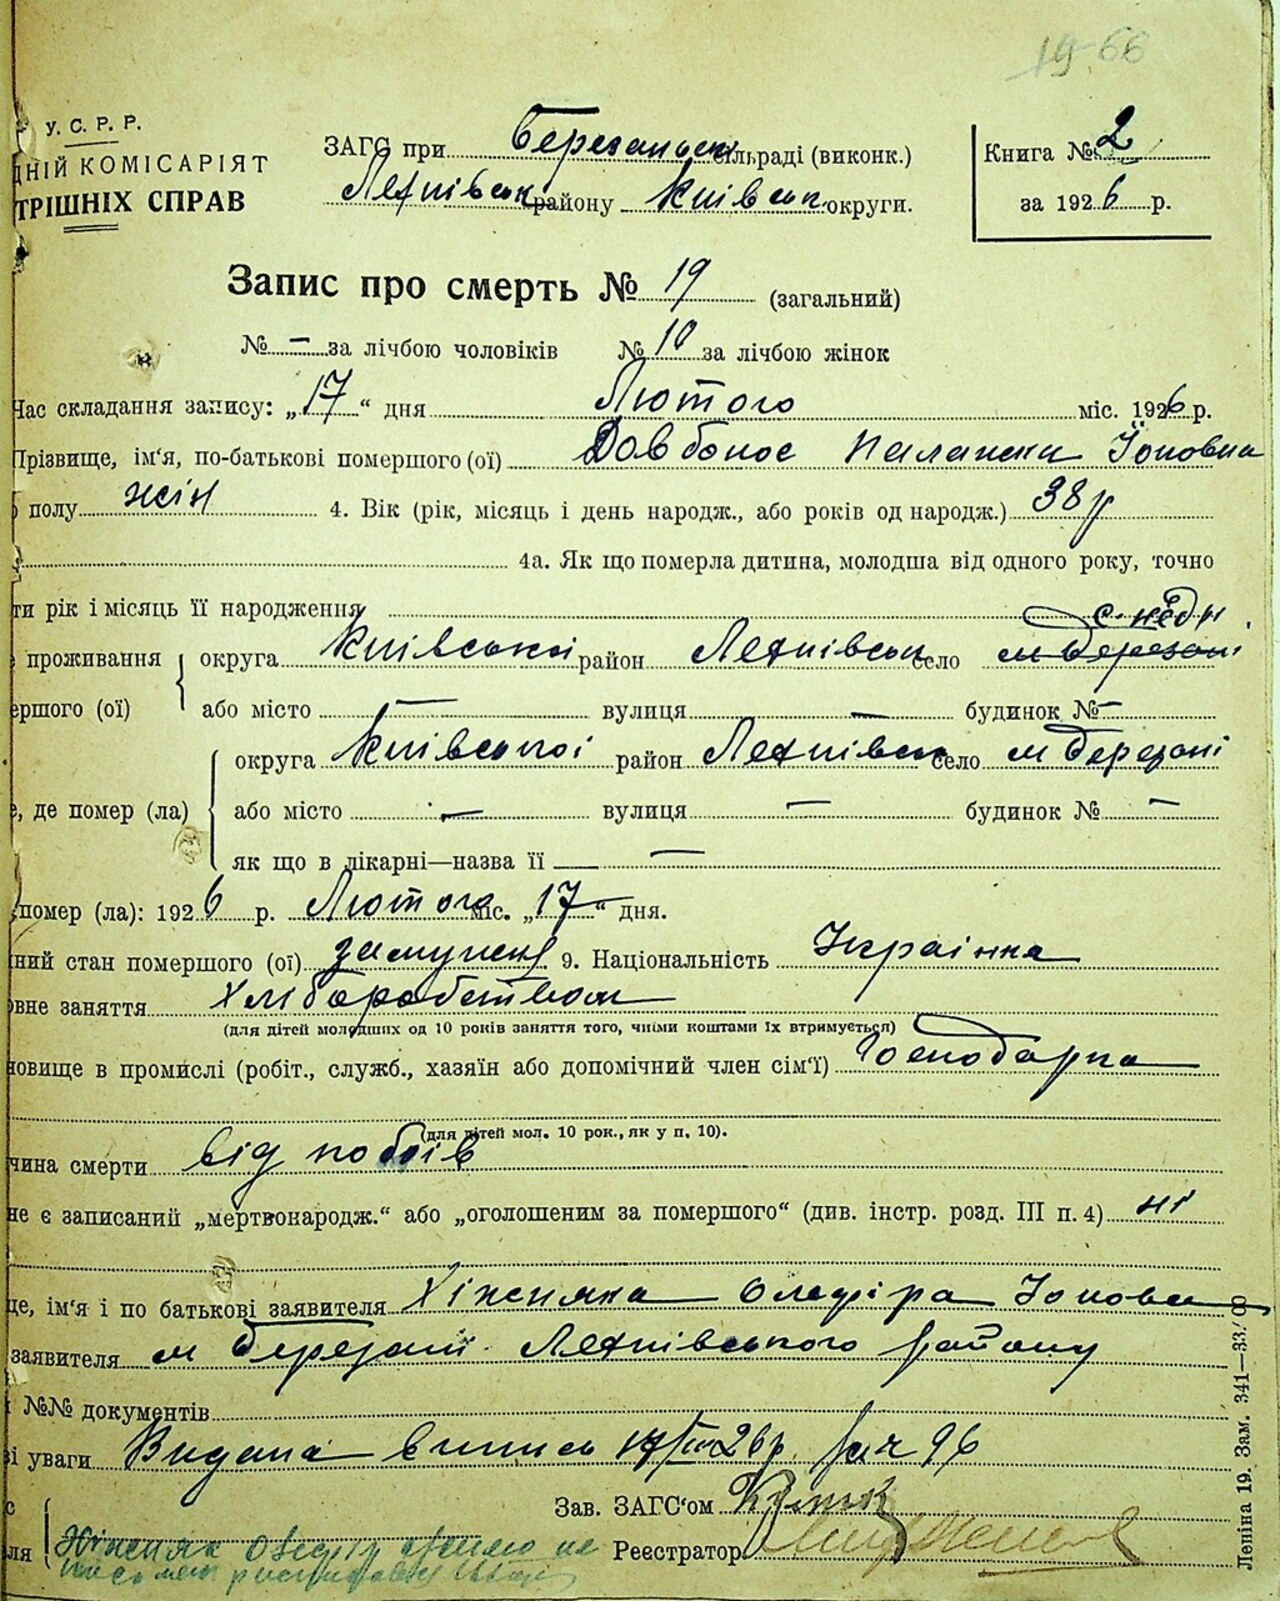 1966
У. С. Р. Р.
ДНІЙ КОМІСАРІЯТ
ТРІШНІХ СПРАВ
ЗАГС при Березанськ сільраді (виконк.)
району Київськ округи.
Книга № 2
за 1926 р.
Запис про смерть № 19 (загальний)
№ — за лічбою чоловіків № 10 за лічбою жінок
Час складання запису: „17“ дня Лютого міс. 1926 р.
Прізвище, ім'я, по-батькові помершого (ої) Довбонос Палажки Йоповна
полу жін 4. Вік (рік, місяць і день народж., або років од народж.) 38 р
4а. Як що померла дитина, молодша від одного року, точно
ти рік і місяць її народження
с.
проживання округа Київської район село м Березані
ершого (ої) або місто — вулиця — будинок № —
округа Київської район село м Березані
, де помер (ла) або місто — вулиця — будинок № —
як що в лікарні—назва її —
помер (ла): 1926 р. Лютого міс. „17“ дня.
ний стан помершого (ої) замужня 9. Національність Українка
вне заняття Хліборобством
(для дітей молодших од 10 років заняття того, чиїми коштами їх втримується)
новище в промислі (робіт., служб., хазяїн або допомічний член сім'ї) Господарка
(для дітей мол. 10 рок., як у п. 10).
чина смерти від побоїв
не є записаний „мертвонародж.“ або „оголошеним за помершого“ (див. інстр. розд. III п. 4) ні
це, ім'я і по батькові заявителя Хіжняка Олефіра
заявителя м Березані району
№№ документів
і уваги Видана випись 26 р. 96
Зав. ЗАГС'ом
ля Реєстратор
Леніна 19. Зам. 341—33.